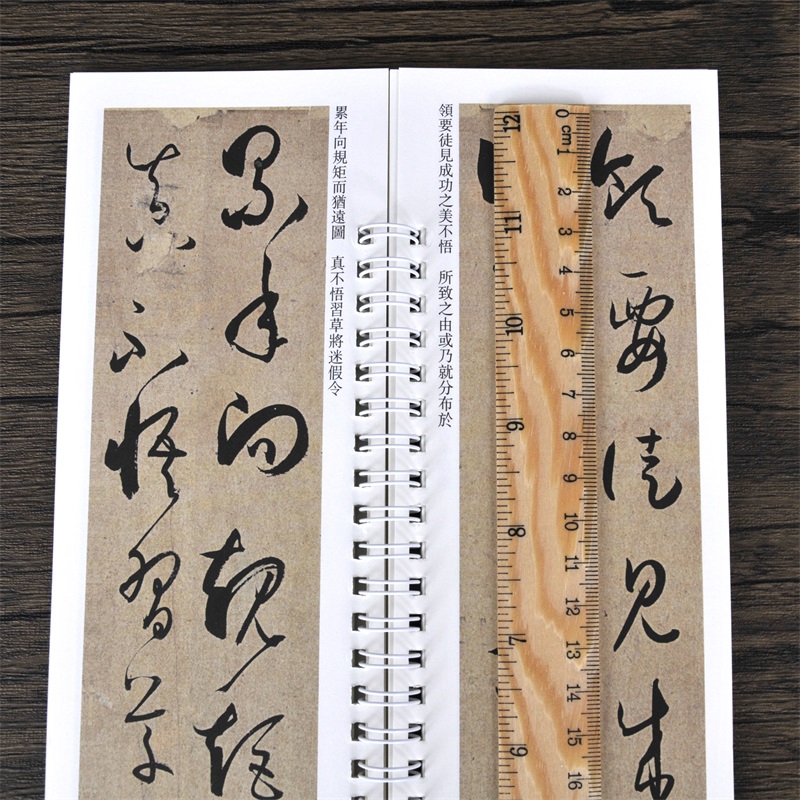 領要徒見成功之美不悟 所致之由或乃就分布於
領要徒見成
累年向規矩而猶遠圖 真不悟習草將迷假令
累年向規矩
真不悟習草
0 cm 1 2 3 4 5 6 7 8 9 10 11 12 13 14 15 16
12 11 10 9 8 7 6